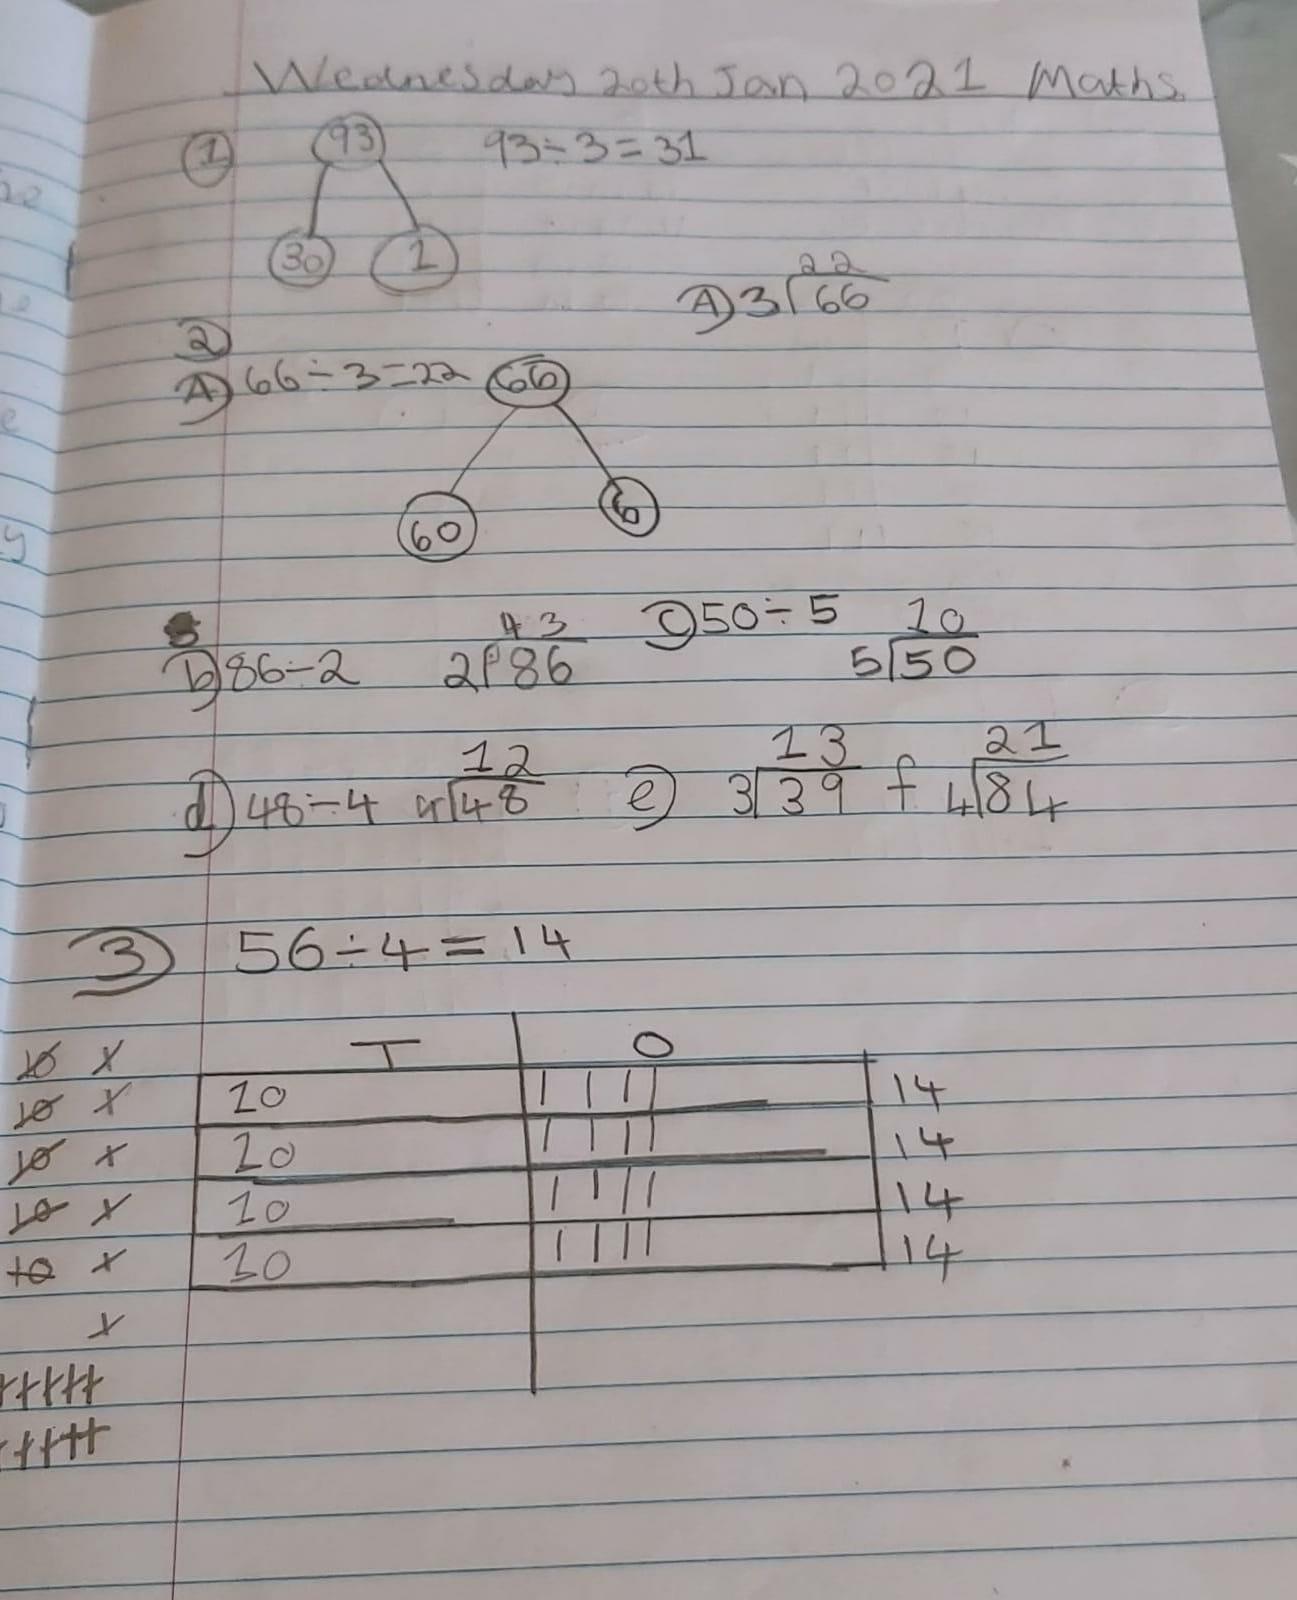 Wednesday 20th Jan 2021 Maths.
1 93 93÷3=31
30 1
A) 3 66
22
2
A) 66÷3=22 66
60 6
b) 86÷2 2 86
43
c) 50÷5 5 50
10
d) 48÷4 4 48
12
e) 3 39
13
f 4 84
21
3 56÷4=14
T O
10 X
10 X 10 1 1 1 1 14
10 X 10 1 1 1 1 14
10 X 10 1 1 1 1 14
10 X 10 1 1 1 1 14
X